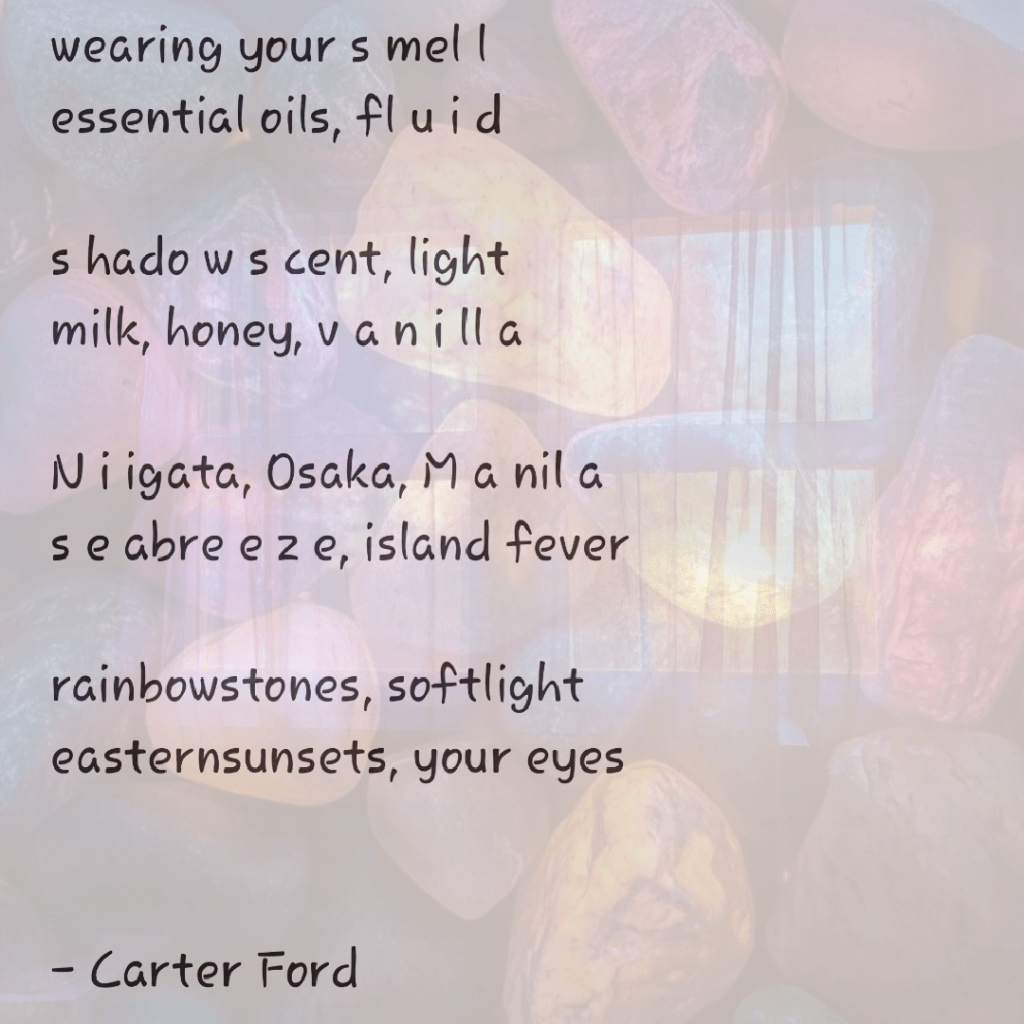 wearing your s mel l
essential oils, fl u i d
s hado w s cent, light
milk, honey, v a n i ll a
N i igata, Osaka, M a nil a
s e abre e z e, island fever
rainbowstones, softlight
easternsunsets, your eyes
- Carter Ford